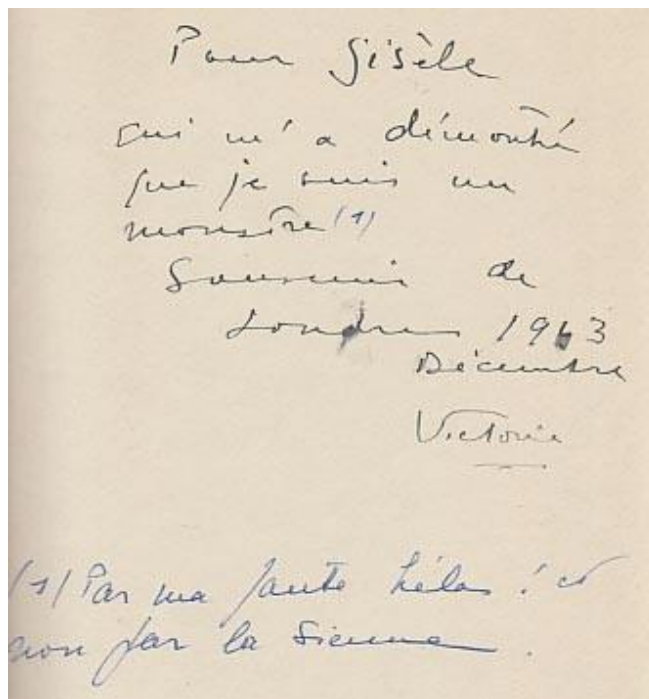 Pour Gisèle
qui m'a démontré
que je suis un
monstre (1)
Souvenir de
Londres 1963
Décembre
Victoria
(1) Par ma faute hélas ! et
non par la sienne.